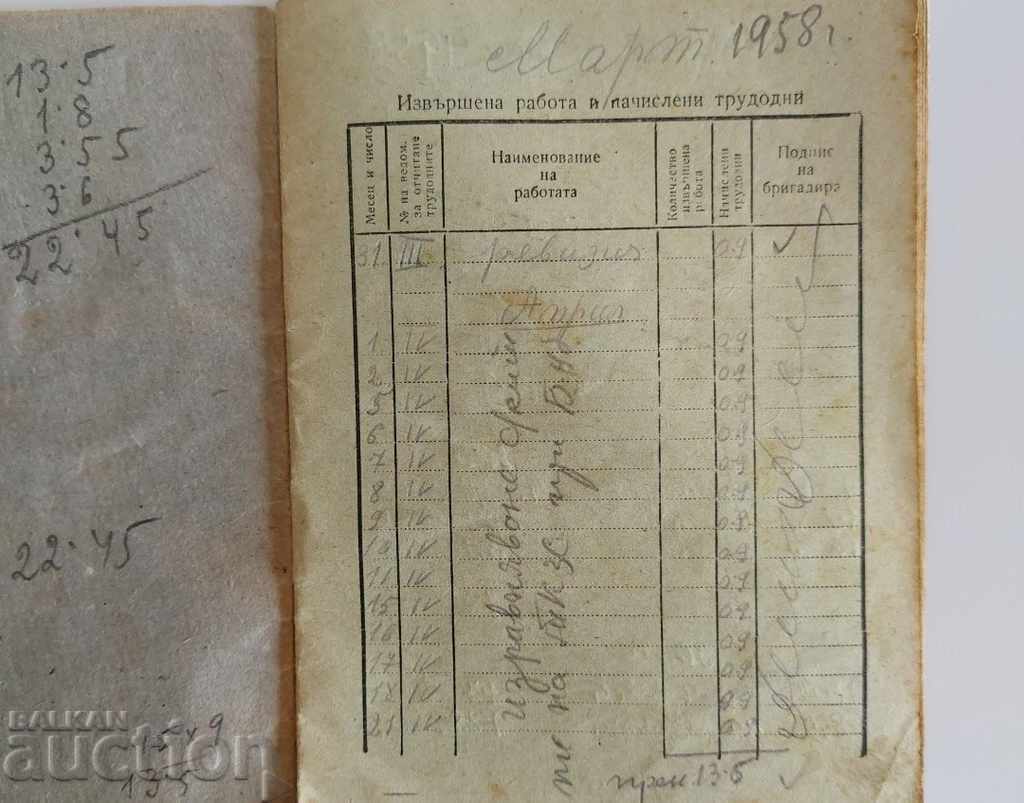 13·5
1·8
3·55
3·6
22·45
22·45
15 х 9
13·5
Март 1958 г.
Извършена работа и начислени трудодни
Месец и число
№ на ведом. за отчитане трудодните
Наименование на работата
Количество извършена работа
Начислени трудодни
Подпис на бригадира
31. III ревизия 0.9
Април
1. IV 0.9
2. IV 0.9
5 IV 0.9
6 IV 0.9
7 IV 0.9
8 IV 0.9
9 IV 0.9
10 IV 0.9
11 IV 0.9
15 IV 0.9
16 IV 0.9
17 IV 0.9
18 IV 0.9
21 IV 0.9
изравняване
на ТКЗС при
прен 13·5
BALKAN
auction